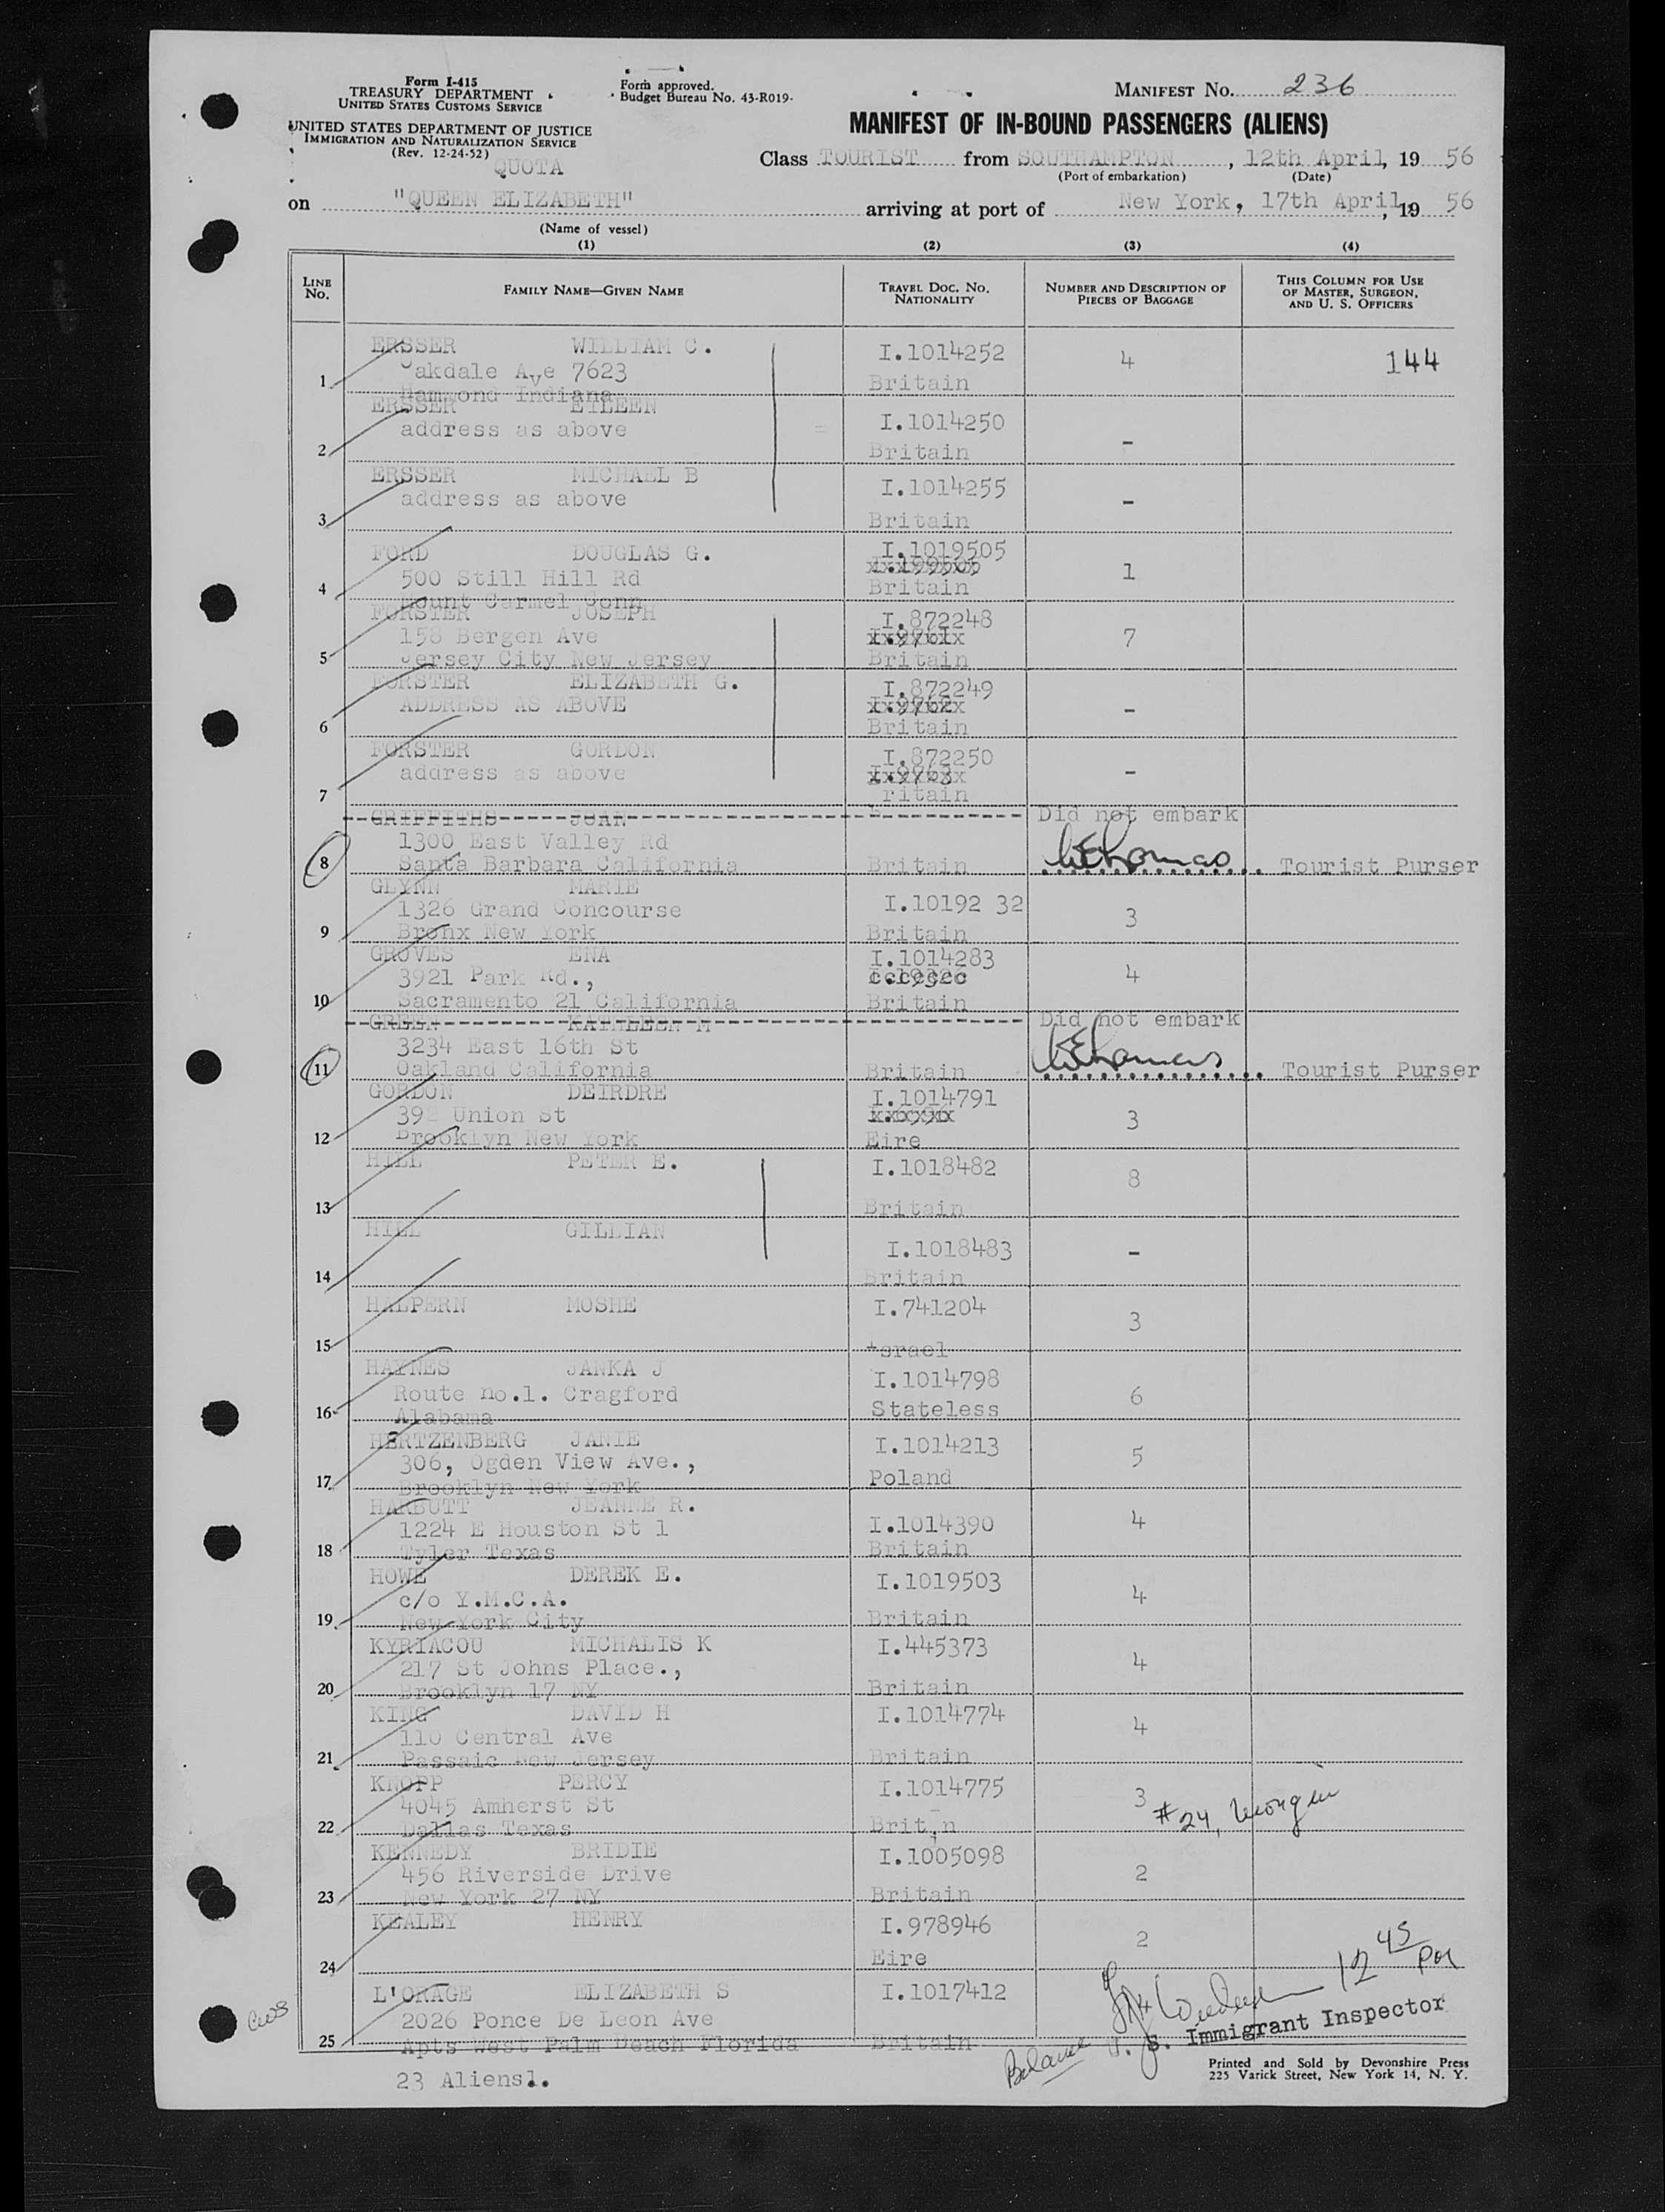 Form I-415
TREASURY DEPARTMENT
UNITED STATES CUSTOMS SERVICE
Form approved.
Budget Bureau No. 43-R019.
MANIFEST No. 236
UNITED STATES DEPARTMENT OF JUSTICE
IMMIGRATION AND NATURALIZATION SERVICE
(Rev. 12-24-52)
QUOTA
MANIFEST OF IN-BOUND PASSENGERS (ALIENS)
Class TOURIST from SOUTHAMPTON, 12th April, 19 56
(Port of embarkation) (Date)
on "QUEEN ELIZABETH" arriving at port of New York, 17th April, 19 56
(Name of vessel)
(1) (2) (3) (4)
LINE No. FAMILY NAME—GIVEN NAME TRAVEL DOC. No. NATIONALITY NUMBER AND DESCRIPTION OF PIECES OF BAGGAGE THIS COLUMN FOR USE OF MASTER, SURGEON, AND U. S. OFFICERS
ERSSER WILLIAM C. I.1014252 4 144
akdale Ave 7623
1 Hammond Indiana Britain
ERSSER EILEEN I.1014250 -
address as above
2 Britain
ERSSER MICHAEL B I.1014255 -
address as above
3 Britain
FORD DOUGLAS G. I.1019505 1
500 Still Hill Rd
4 Mount Carmel Conn Britain
FORSTER JOSEPH I.872248 7
158 Bergen Ave
5 Jersey City New Jersey Britain
FORSTER ELIZABETH G. I.872249 -
ADDRESS AS ABOVE
6 Britain
FORSTER GORDON I.872250 -
address as above
7 ritain
GRIFFITHS JOAN Did not embark
1300 East Valley Rd
8 Santa Barbara California Britain Tourist Purser
GLYNN MARIE I.10192 32 3
1326 Grand Concourse
9 Bronx New York Britain
GROVES ENA I.1014283 4
3921 Park Rd.,
10 Sacramento 21 California Britain
GREEN KATHLEEN M Did not embark
3234 East 16th St
11 Oakland California Britain Tourist Purser
GORDON DEIRDRE I.1014791 3
39 Union St
12 Brooklyn New York Eire
HILL PETER E. I.1018482 8
13 Britain
HILL GILLIAN I.1018483 -
14 Britain
HALPERN MOSHE I.741204 3
15 Israel
HAYNES JANKA J I.1014798 6
Route no.1. Cragford
16 Alabama Stateless
HERTZENBERG JANIE I.1014213 5
306, Ogden View Ave.,
17 Brooklyn New York Poland
HARBUTT JEANNE R. 4
1224 E Houston St 1 I.1014390
18 Tyler Texas Britain
HOWE DEREK E. I.1019503 4
c/o Y.M.C.A.
19 New York City Britain
KYRIACOU MICHALIS K I.445373 4
217 St Johns Place.,
20 Brooklyn 17 NY Britain
KING DAVID H I.1014774 4
110 Central Ave
21 Passaic New Jersey Britain
KNOPP PERCY I.1014775 3
4045 Amherst St #24,
22 Dallas Texas Brit n
KENNEDY BRIDIE I.1005098 2
456 Riverside Drive
23 New York 27 NY Britain
KEALEY HENRY I.978946 2
24 Eire
12 45 PM
L'ORAGE ELIZABETH S I.1017412
2026 Ponce De Leon Ave
U. S. Immigrant Inspector
25 Apts West Palm Beach Florida Britain
23 Aliens1.
Printed and Sold by Devonshire Press
225 Varick Street, New York 14, N. Y.